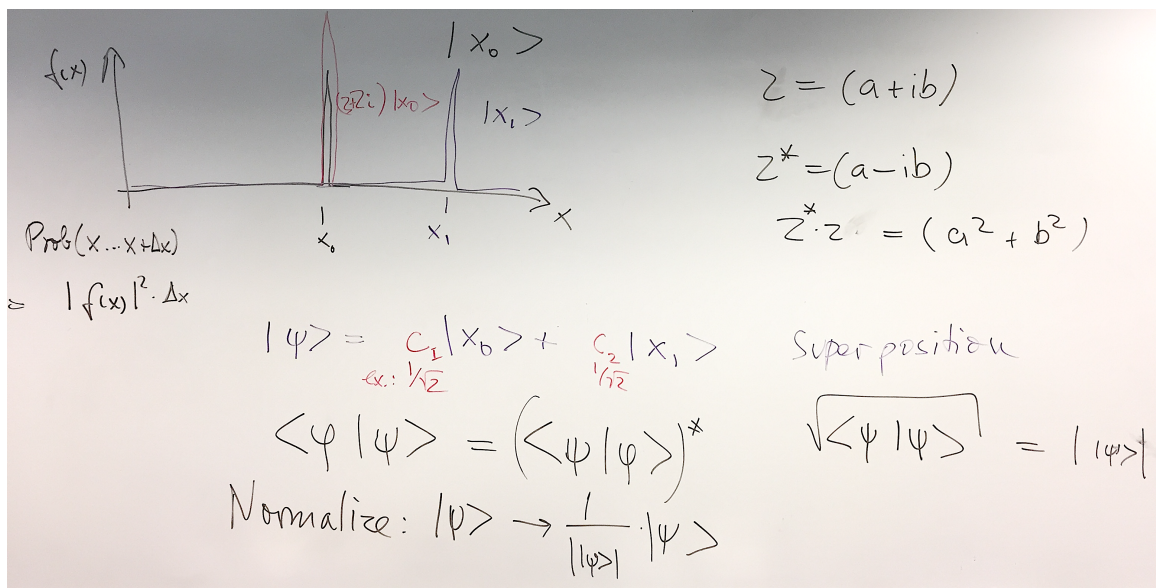 f(x)
|x₀>
(2+2i)|x₀>
|x₁>
x₀
x₁
x
Prob(x...x+Δx)
= |f(x)|²·Δx
z = (a+ib)
z* = (a-ib)
z*·z = (a² + b²)
|ψ> = C₁|x₀> + C₂|x₁> Superposition
ex.: 1/√2 1/√2
<φ|ψ> = (<ψ|φ>)* √<ψ|ψ> = ||ψ>|
Normalize: |ψ> → 1/||ψ>| · |ψ>